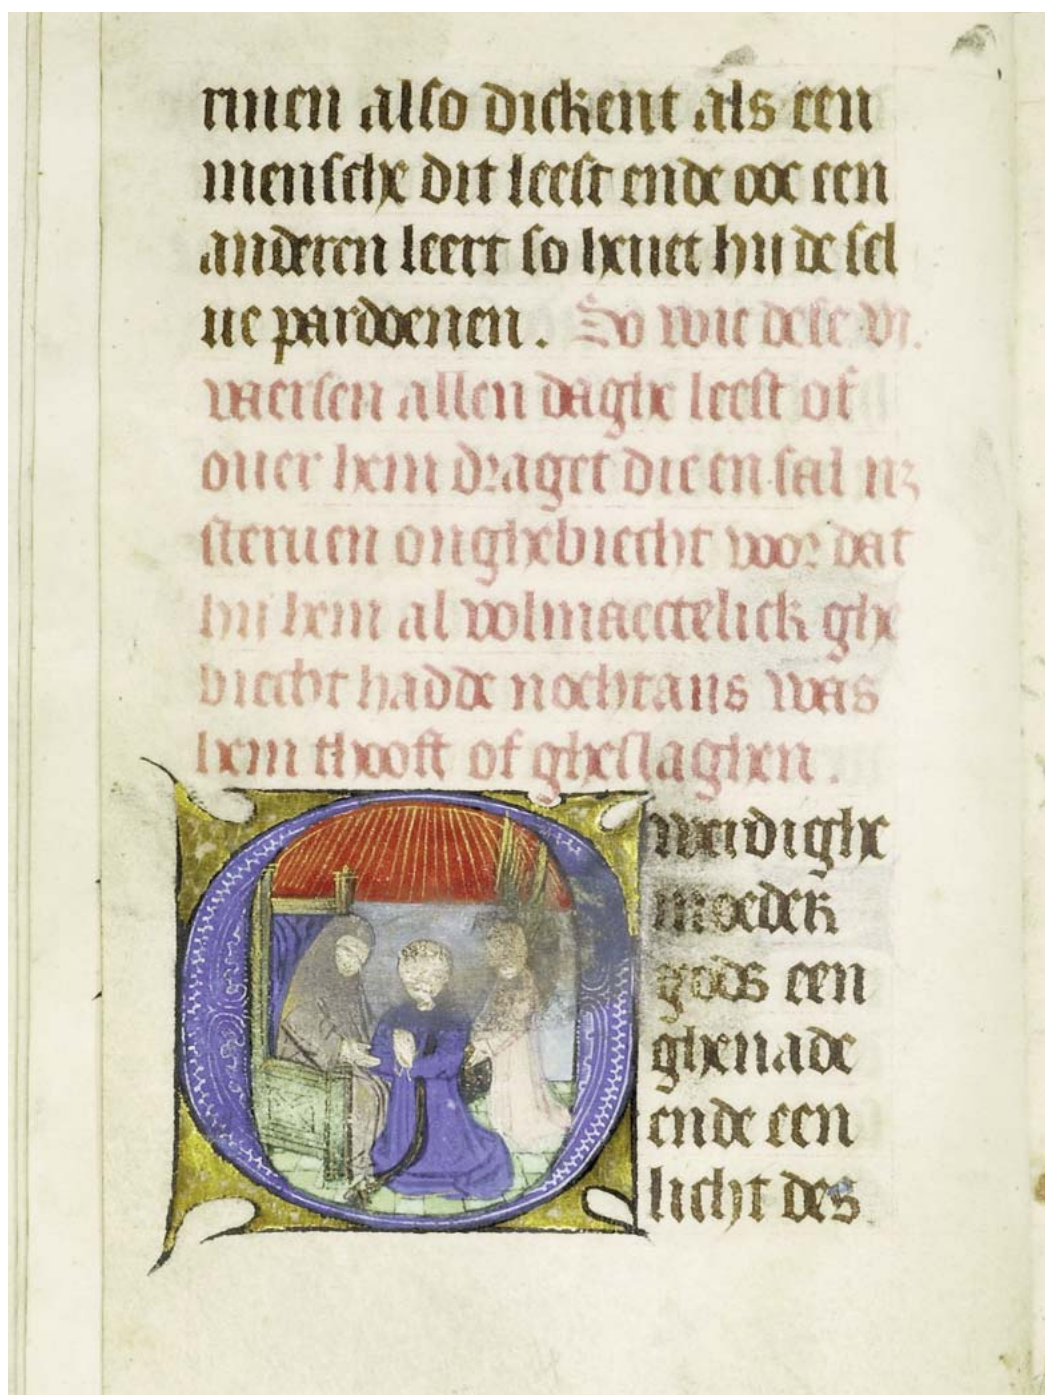 rinen also dickent als een
mensche dit leest ende ooc een
anderen leert so heuet hij de sel
ue pardoenen. So wie dese vi.
vaersen allen daghe leest of
ouer hem draget die en sal nz
steruen onghebiecht voor dat
hij hem al volmaectelick ghe
biecht hadde nochtans was
hem thooft of gheslaghen.
O weidighe
moeder
gods een
ghenade
ende een
licht des